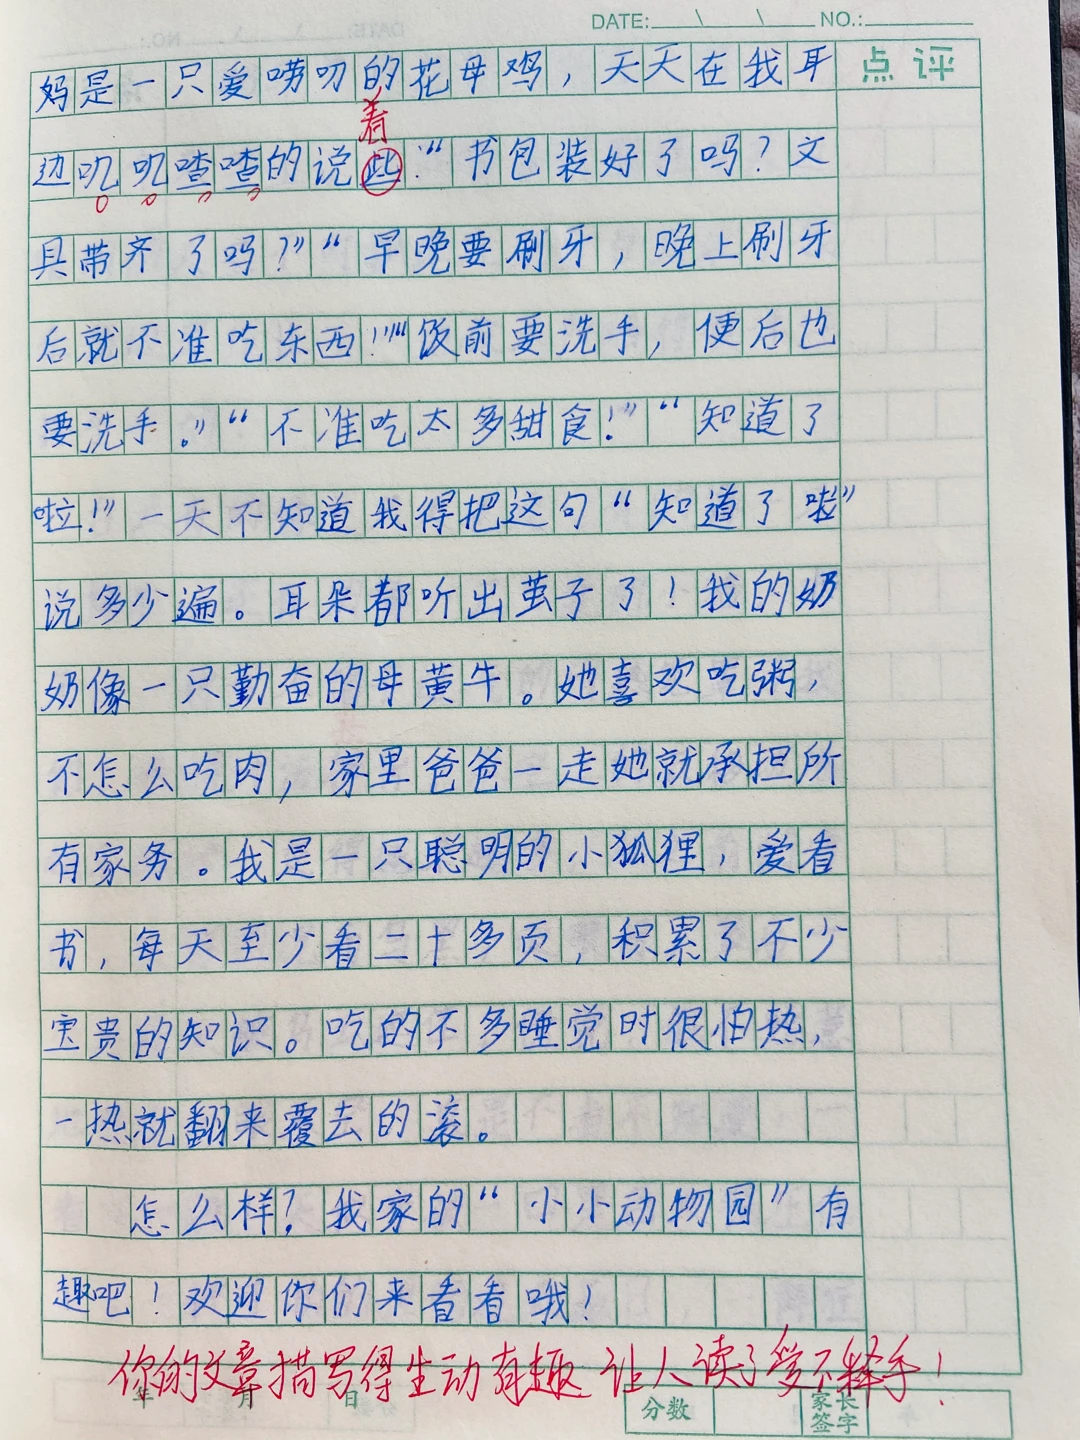 DATE: \ \ NO.:
点评
妈是一只爱唠叨的花母鸡，天天在我耳
着
边叽叽喳喳的说些：“书包装好了吗？文
具带齐了吗？”“早晚要刷牙，晚上刷牙
后就不准吃东西！”“饭前要洗手，便后也
要洗手。”“不准吃太多甜食！”“知道了
啦！”一天不知道我得把这句“知道了啦”
说多少遍。耳朵都听出茧子了！我的奶
奶像一只勤奋的母黄牛。她喜欢吃粥，
不怎么吃肉，家里爸爸一走她就承担所
有家务。我是一只聪明的小狐狸，爱看
书，每天至少看二十多页，积累了不少
宝贵的知识。吃的不多睡觉时很怕热，
一热就翻来覆去的滚。
怎么样？我家的“小小动物园”有
趣吧！欢迎你们来看看哦！
你的文章描写得生动有趣 让人读了爱不释手！
年 月 日 分数 家长签字